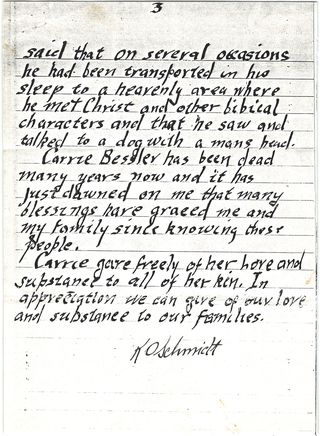 3
said that on several occasions
he had been transported in his
sleep to a heavenly area where
he met Christ and other bibical
characters and that he saw and
talked to a dog with a mans head.
Carrie Bessler has been dead
many years now and it has
just dawned on me that many
blessings have graced me and
my family since knowing these
people.
Carrie gave freely of her love and
substance to all of her kin. In
appreciation we can give of our love
and substance to our families.
K O Schmidt